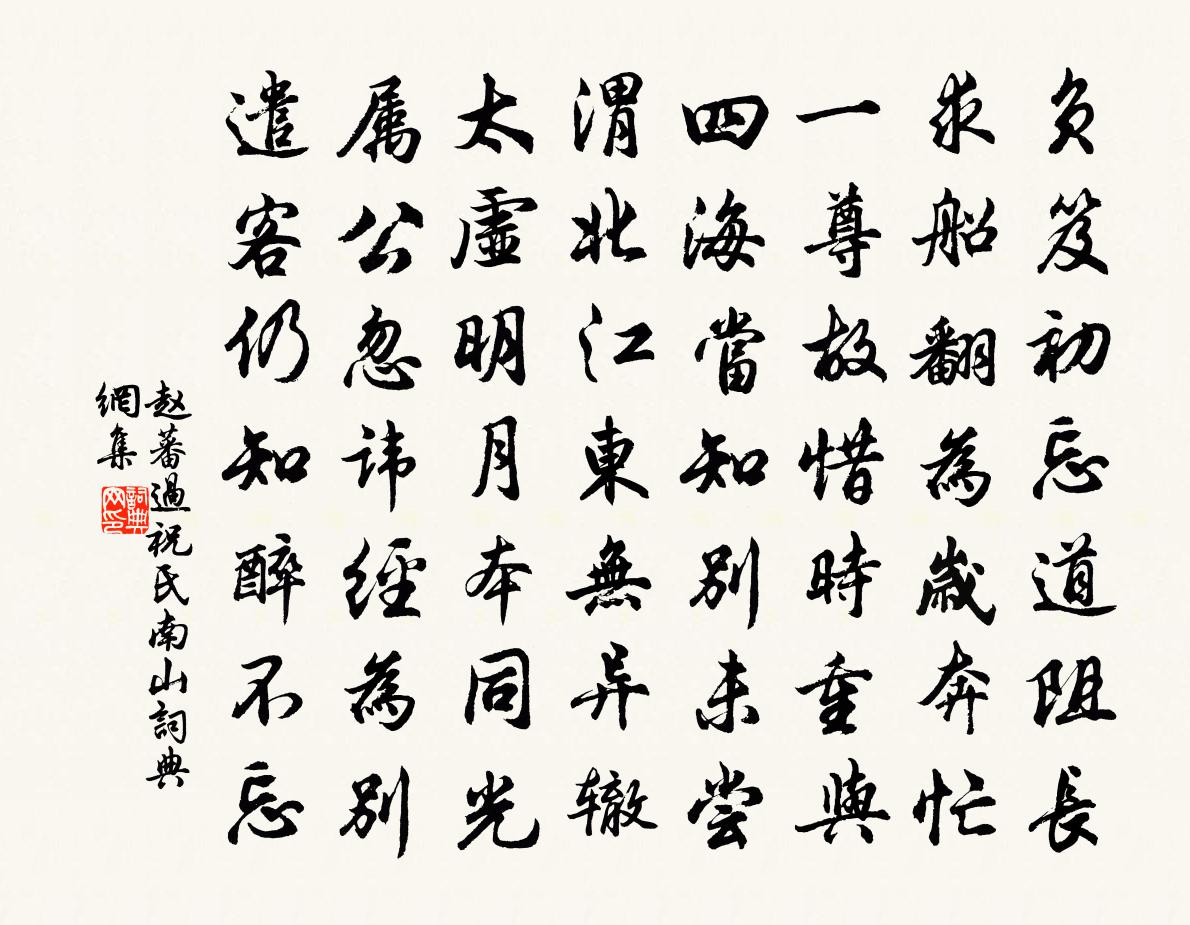 负笈初忘道阻長
求船翻為歲奔忙
一尊故惜時重與
四海當知别未尝
渭北江東無异辙
太虛明月本同光
属公忽讳經為别
遣客仍知醉不忘
赵蕃過祝氏南山詞典
網集
詞典網印